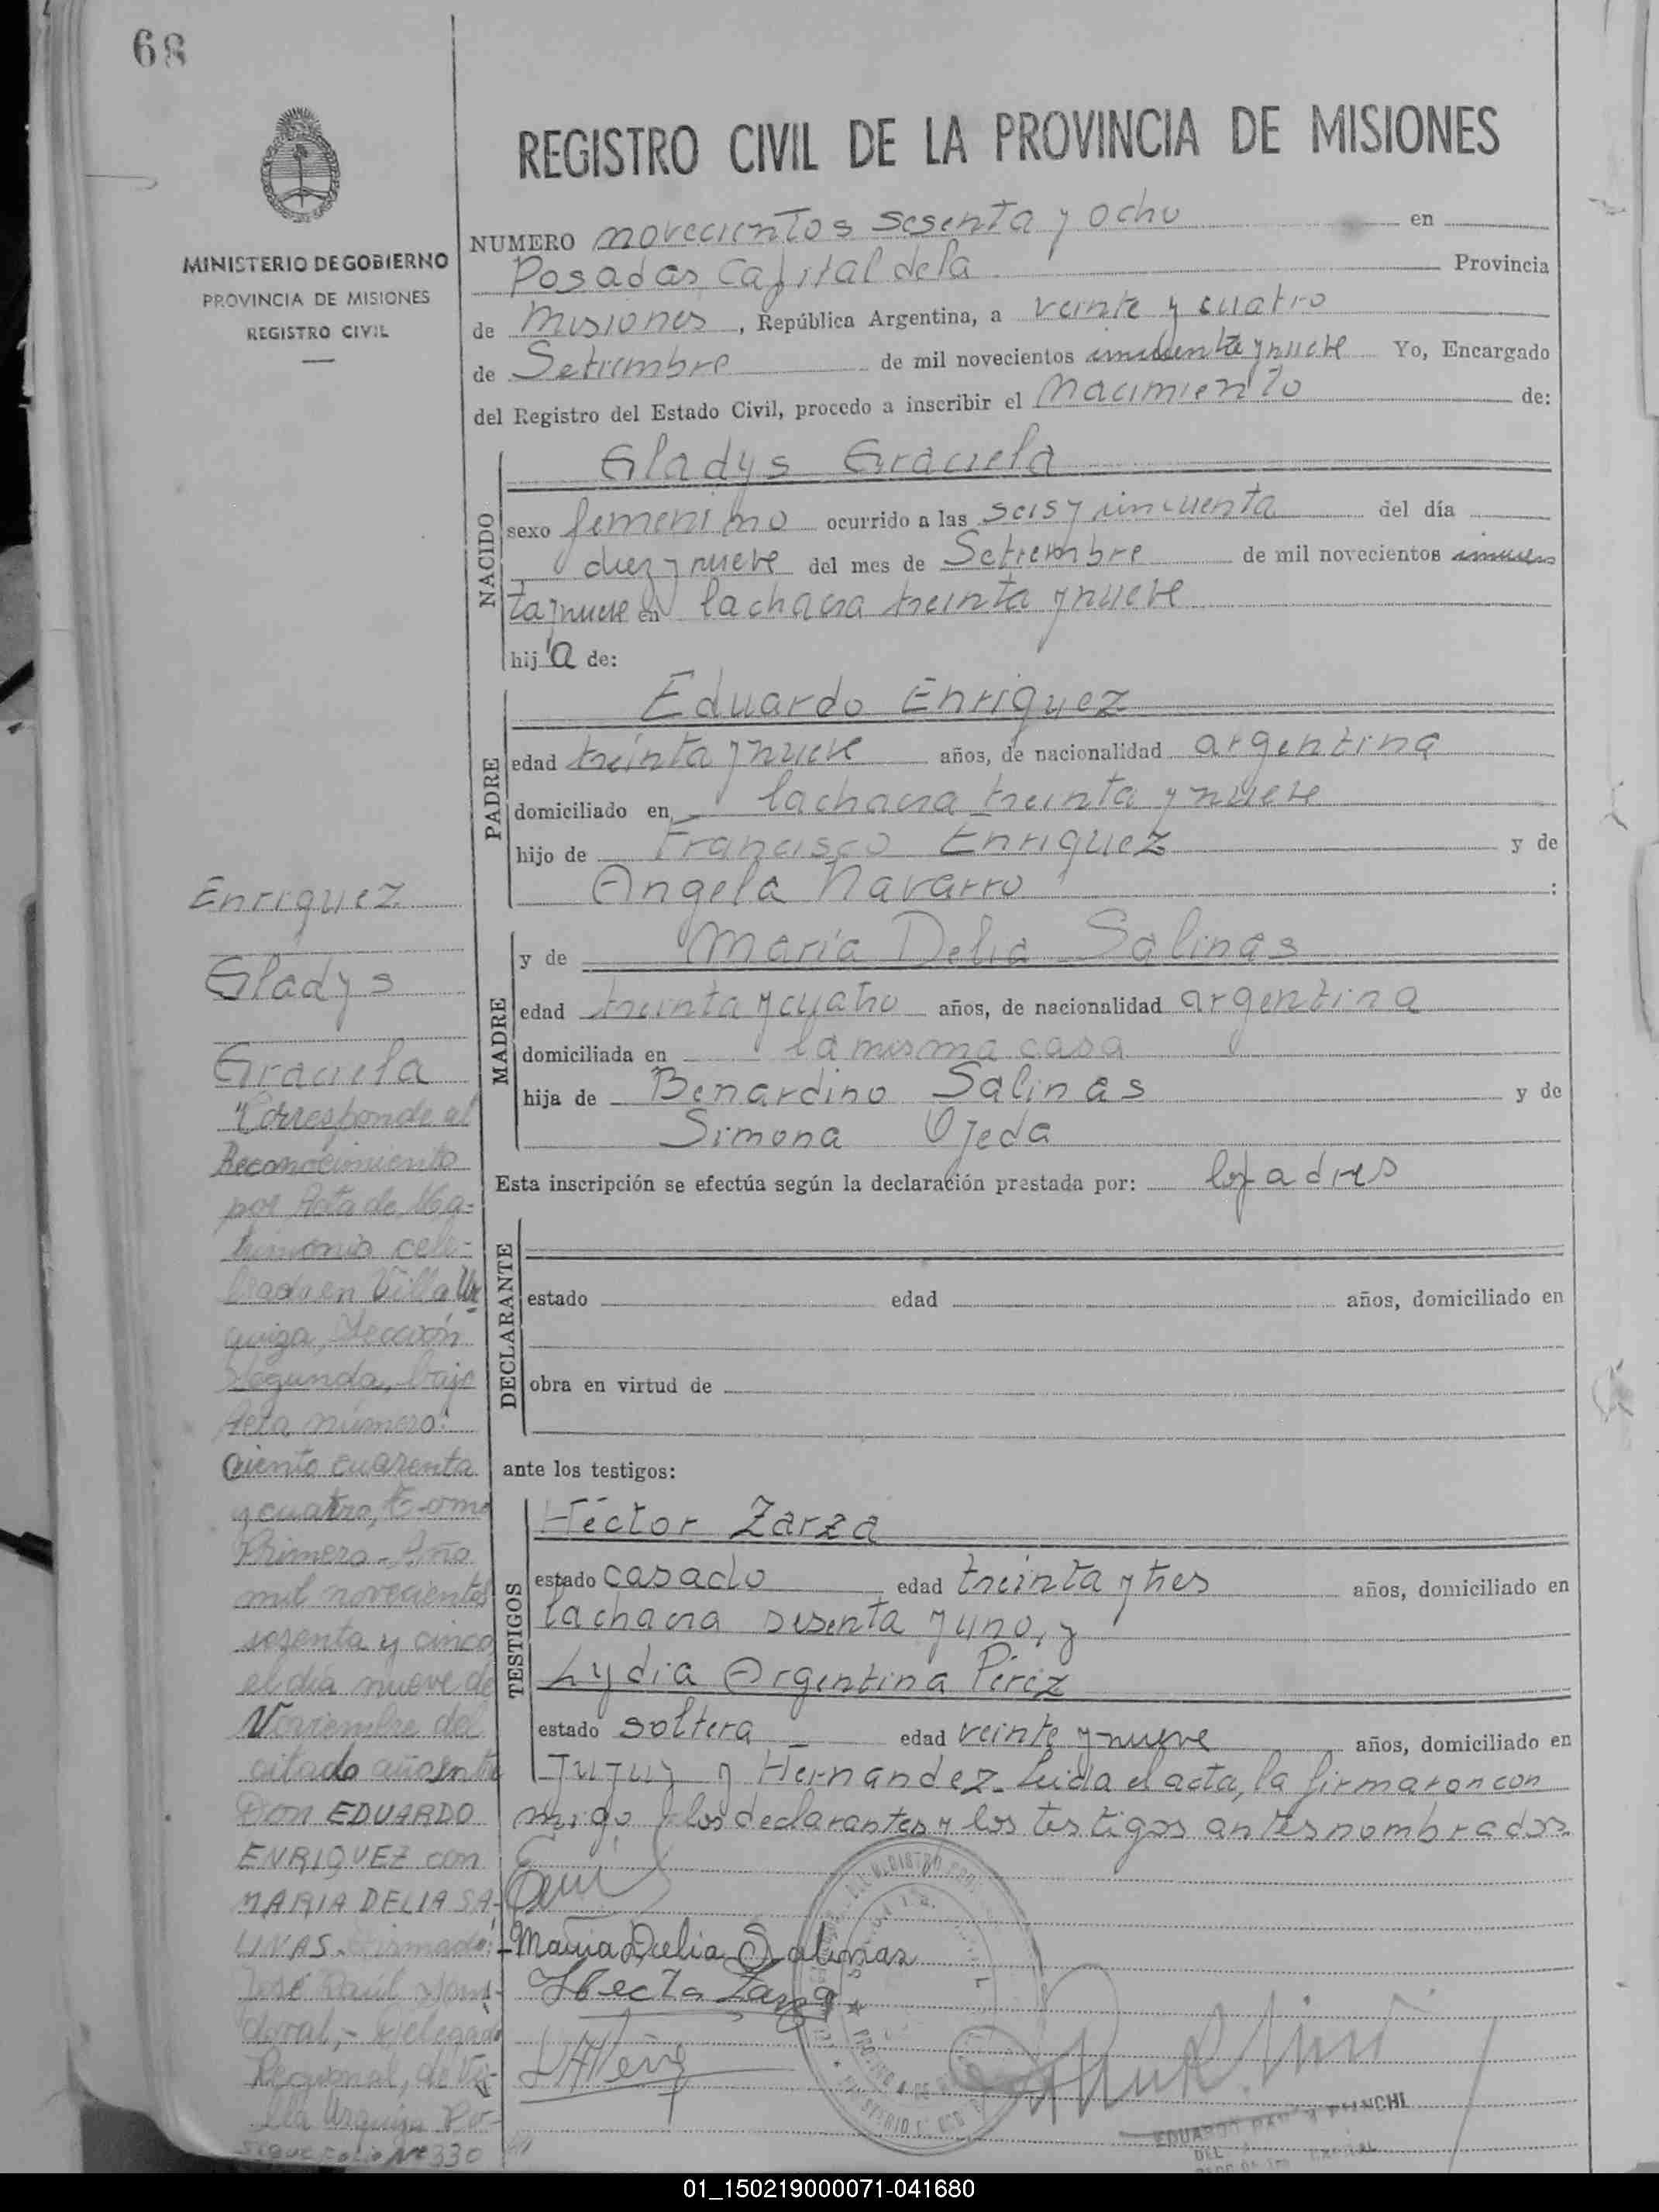 68
MINISTERIO DE GOBIERNO
PROVINCIA DE MISIONES
REGISTRO CIVIL
REGISTRO CIVIL DE LA PROVINCIA DE MISIONES
NUMERO novecientos sesenta y ocho en
Posadas Capital de la Provincia
de Misiones, República Argentina, a veinte y cuatro
de Setiembre de mil novecientos cincuenta y nueve Yo, Encargado
del Registro del Estado Civil, procedo a inscribir el Nacimiento de:
NACIDO
Gladys Graciela
sexo femenino ocurrido a las seis y cincuenta del día
diez y nueve del mes de Setiembre de mil novecientos cincuen
ta y nueve en la chacra treinta y nueve
hija de:
PADRE
Eduardo Enriquez
edad treinta y nueve años, de nacionalidad argentina
domiciliado en la chacra treinta y nueve
hijo de Francisco Enriquez y de
Angela Navarro :
MADRE
y de Maria Delia Salinas
edad treinta y cuatro años, de nacionalidad argentina
domiciliada en la misma casa
hija de Benardino Salinas y de
Simona Ojeda
Esta inscripción se efectúa según la declaración prestada por: los padres
DECLARANTE
estado edad años, domiciliado en
obra en virtud de
ante los testigos:
TESTIGOS
Héctor Zarza
estado casado edad treinta y tres años, domiciliado en
la chacra sesenta y uno, y
Lydia Argentina Pérez
estado soltera edad veinte y nueve años, domiciliado en
Jujuy y Hernandez. Leida el acta, la firmaron con
migo los declarantes y los testigos antes nombrados
Maria Delia Salinas
Hector Zarza
Enriquez
Gladys
Graciela
"Corresponde al
Reconocimiento
por Acta de Ma-
trimonio cele-
brado en Villa Ur
quiza, Sección
Segunda, bajo
Acta número:
Ciento cuarenta
y cuatro, Tomo
Primero - Año
mil novecientos
sesenta y cinco
el día nueve de
Noviembre del
citado año entre
Don EDUARDO
ENRIQUEZ con
MARIA DELIA SA-
LINAS. Firmado:
José Raúl
Delegado
Regional, de Vi-
lla Urquiza Po-
sigue folio Nº 330
EDUARDO
CAPITAL
01_150219000071-041680